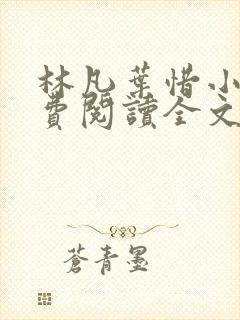 林凡葉惜小
費閱讀全文
蒼青墨